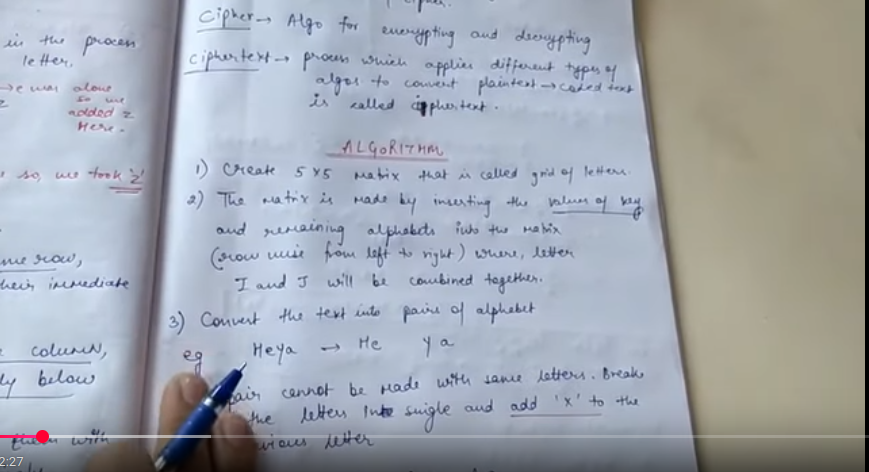 in the process
letter.
→ e was alone
so we
added z
Here.
so, we took 'z'
me row,
heir immediate
column,
ly below
them with
Cipher → Algo for encrypting and decrypting
ciphertext → process which applies different types of
algos to convert plaintext → coded text
is called ciphertext.
ALGORITHM
1) Create 5x5 Matrix that is called grid of letters.
2) The Matrix is Made by inserting the values of key
and remaining alphabets into the matrix
(row wise from left to right) where, letter
I and J will be combined together.
3) Convert the text into pairs of alphabet
eg Heya → He ya
pair cannot be Made with same letters. Break
the letters into single and add 'x' to the
vious letter
2:27